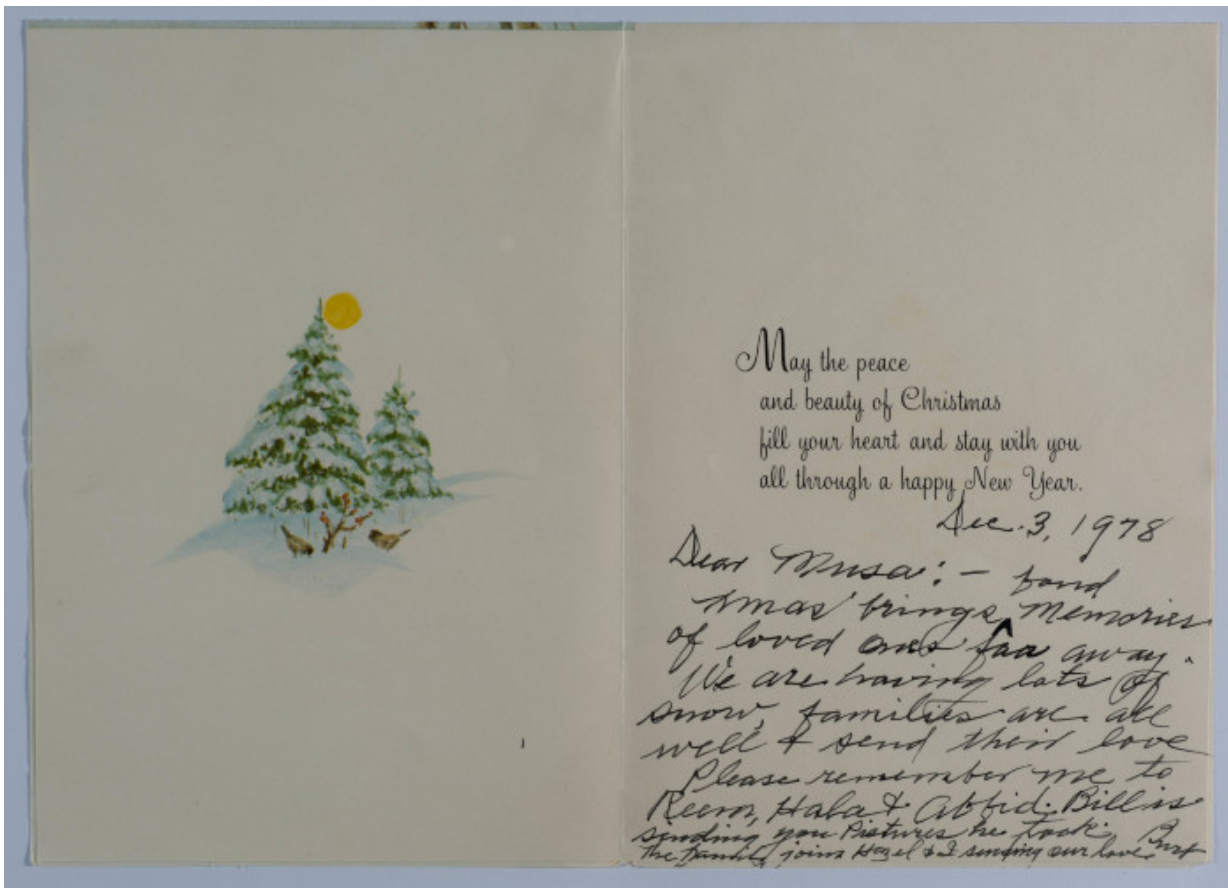 May the peace
and beauty of Christmas
fill your heart and stay with you
all through a happy New Year.
Dec. 3, 1978
Dear Musa: - fond
Xmas brings Memories
of loved ones far away.
We are having lots of
snow, families are all
well & send their love
Please remember me to
Reem, Hala & Abbid. Bill is
sending you Pictures he took.
The Family joins Hazel & I sending our love. Burt